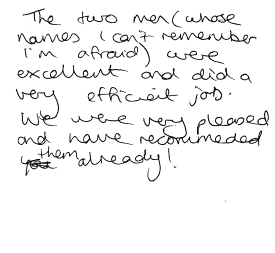 The two men (whose
names I can't remember
I'm afraid) were
excellent and did a
very efficient job.
We were very pleased
and have recommeded
them already!